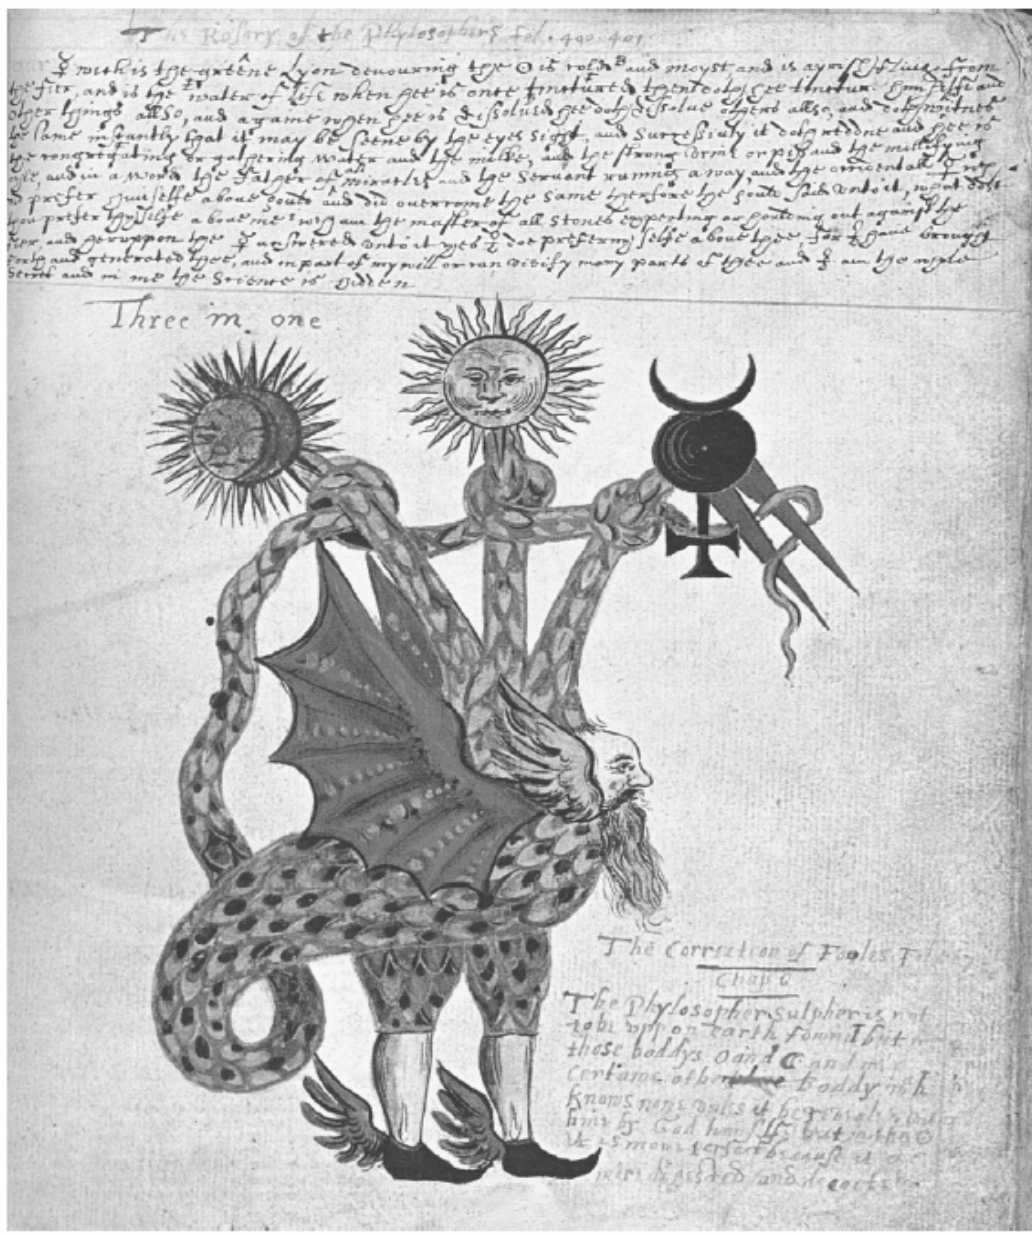 The Rosary of the Phylosophers fol. 400. 401.
☿ which is the greene Lyon devouring the ☉ is cold and moyst, and is ayrish flieing from
the fier, and is the water of life when hee is once tinctured then doth hee tincture himselfe and
other things allso, and againe when hee is dissolved hee doth dissolve others allso, and doth witnes
the same instantly that it may be seene by the eyes sight, and it doth and hee is
the congregating or gathering water and the milke, and the strong or piss and the mollifying
and in a word the Father of all miracles and the Servant running away and the occidentall ☿
prefer himselfe above gould and did overcome the same therfore the gould said unto it, what dost
thou prefer thyselfe above me I am the master of all stones or out against the
fier, and heruppon the ☿ answered unto it yes I doe prefer my selfe above thee, for I have brought
forth and generated thee, and in part of my will or can vivify many parts of thee and I am the whole
Secret and in me the Science is hidden
Three in one
The Correction of Fooles
Chap 6
The Phylosophers Sulpher is not
to be upp on earth found but
those boddys ☉ and ☾ and in a
Certaine other boddy which
knows none unles it be
him by God himselfe but in the ☉
it is more perfect because it
more digested and decocted